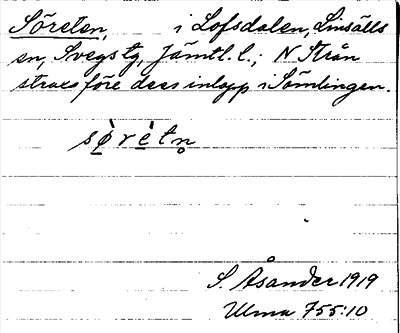 Söreten, i Lofsdalen, Linsälls
sn, Svegs tg, Jämtl. l.; N Från
strax före dess inlopp i Sömlingen.
sø̀rètn̥
S. Åsander 1919
Ulma 755:10